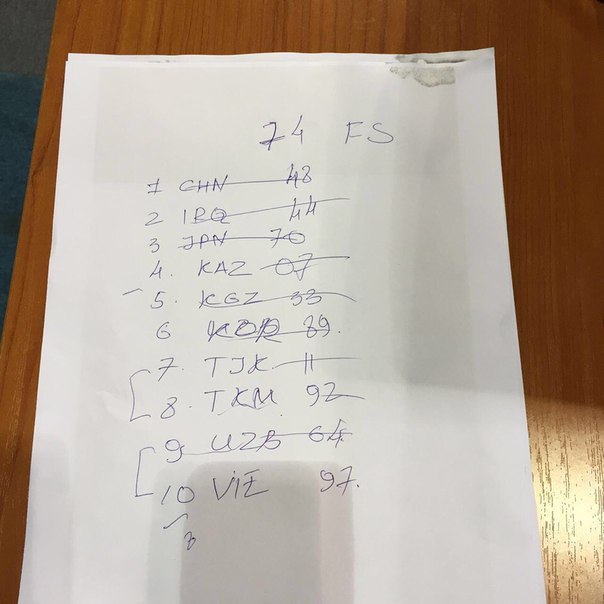 74 FS
1 CHN 48
2 IRQ 44
3 JPN 70
4. KAZ 07
5. KGZ 33
6 KOR 89.
7. TJK 11
8. TKM 92
9 UZB 64
10 VIE 97.